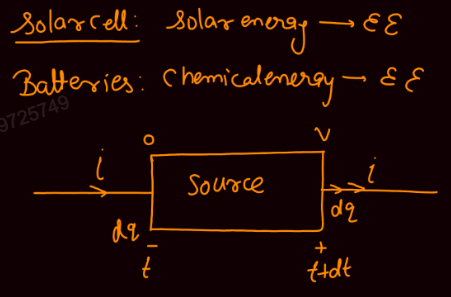 Solar cell: Solar energy → EE
Batteries: Chemical energy → EE
9725749
0 V
i Source i
dq dq
- +
t t+dt